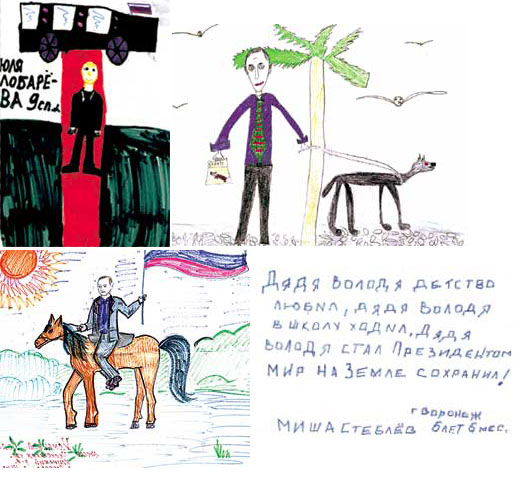 ЮЛЯ
ЛОБАРЁ-
ВА 9сп.
ДЯДЯ ВОЛОДЯ ДЕТСТВО
ЛЮБИЛ, ДЯДЯ ВОЛОДЯ
В ШКОЛУ ХОДИЛ, ДЯДЯ
ВОЛОДЯ СТАЛ ПРЕЗИДЕНТОМ
МИР НА ЗЕМЛЕ СОХРАНИЛ!
г Воронеж
МИША СТЕБЛЁВ 6 ЛЕТ 6 мес.